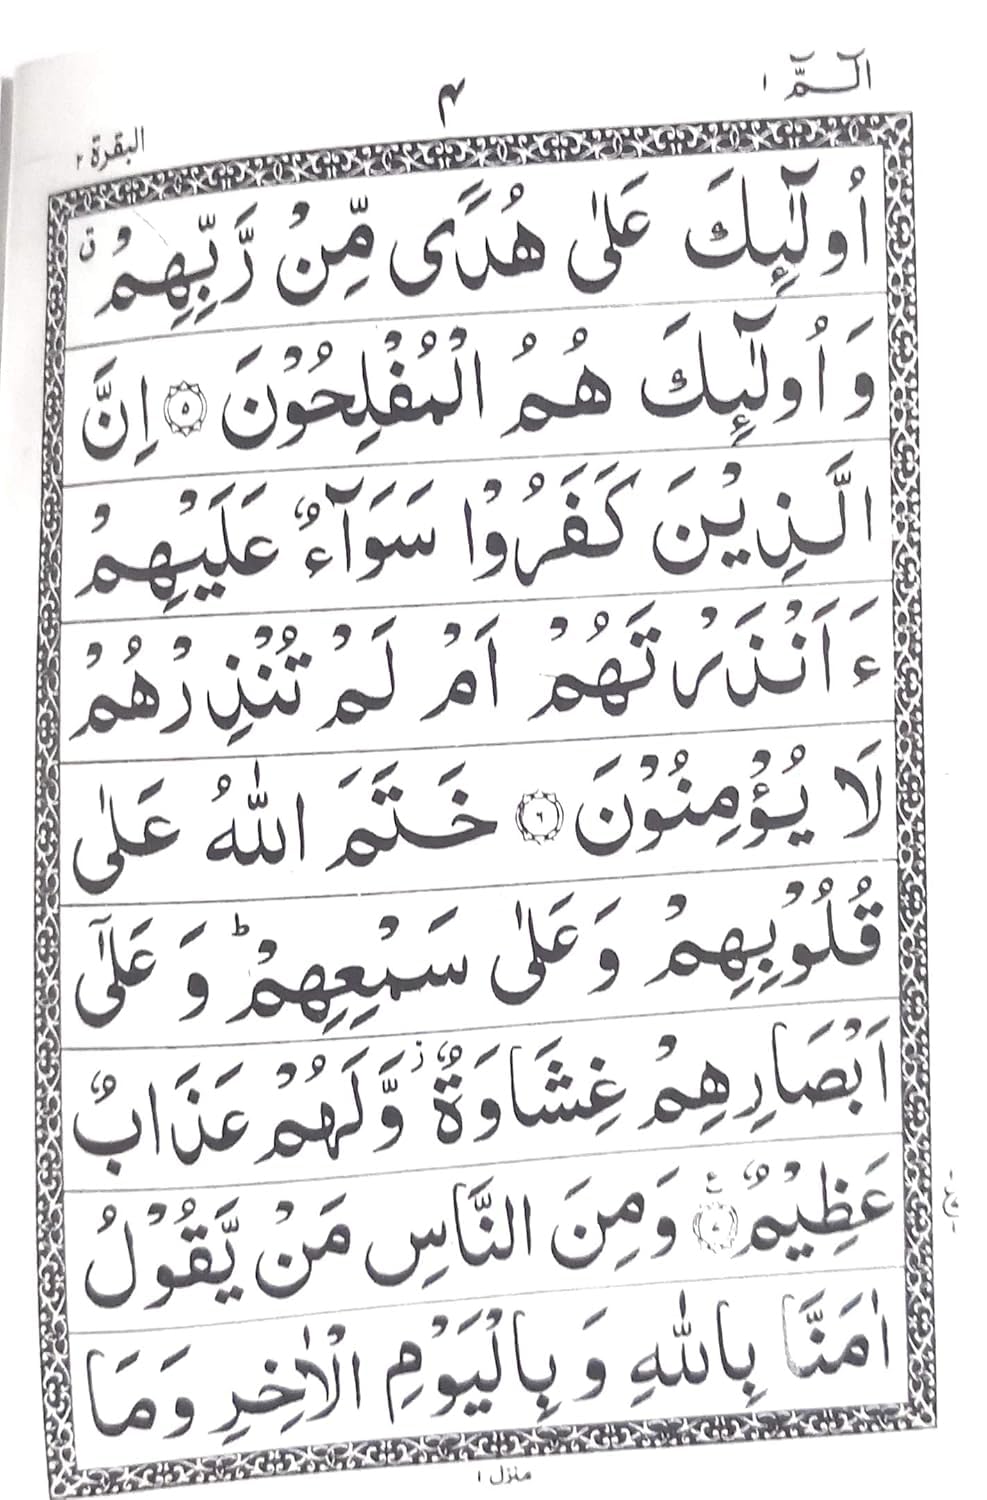 الٓـمّٓ ١
۴
البقرة ٢
اُولٰٓئِكَ عَلٰى هُدًى مِّنْ رَّبِّهِمْ ق
وَ اُولٰٓئِكَ هُمُ الْمُفْلِحُوْنَ ۵ اِنَّ
الَّذِيْنَ كَفَرُوْا سَوَآءٌ عَلَيْهِمْ
ءَاَنْذَرْتَهُمْ اَمْ لَمْ تُنْذِرْهُمْ
لَا يُؤْمِنُوْنَ ۶ خَتَمَ اللّٰهُ عَلٰى
قُلُوْبِهِمْ وَ عَلٰى سَمْعِهِمْ ؕ وَ عَلٰٓى
اَبْصَارِهِمْ غِشَاوَةٌ ز وَّلَهُمْ عَذَابٌ
عَظِيْمٌ ۷ ع وَمِنَ النَّاسِ مَنْ يَّقُوْلُ
اٰمَنَّا بِاللّٰهِ وَ بِالْيَوْمِ الْاٰخِرِ وَمَا
منزل ١